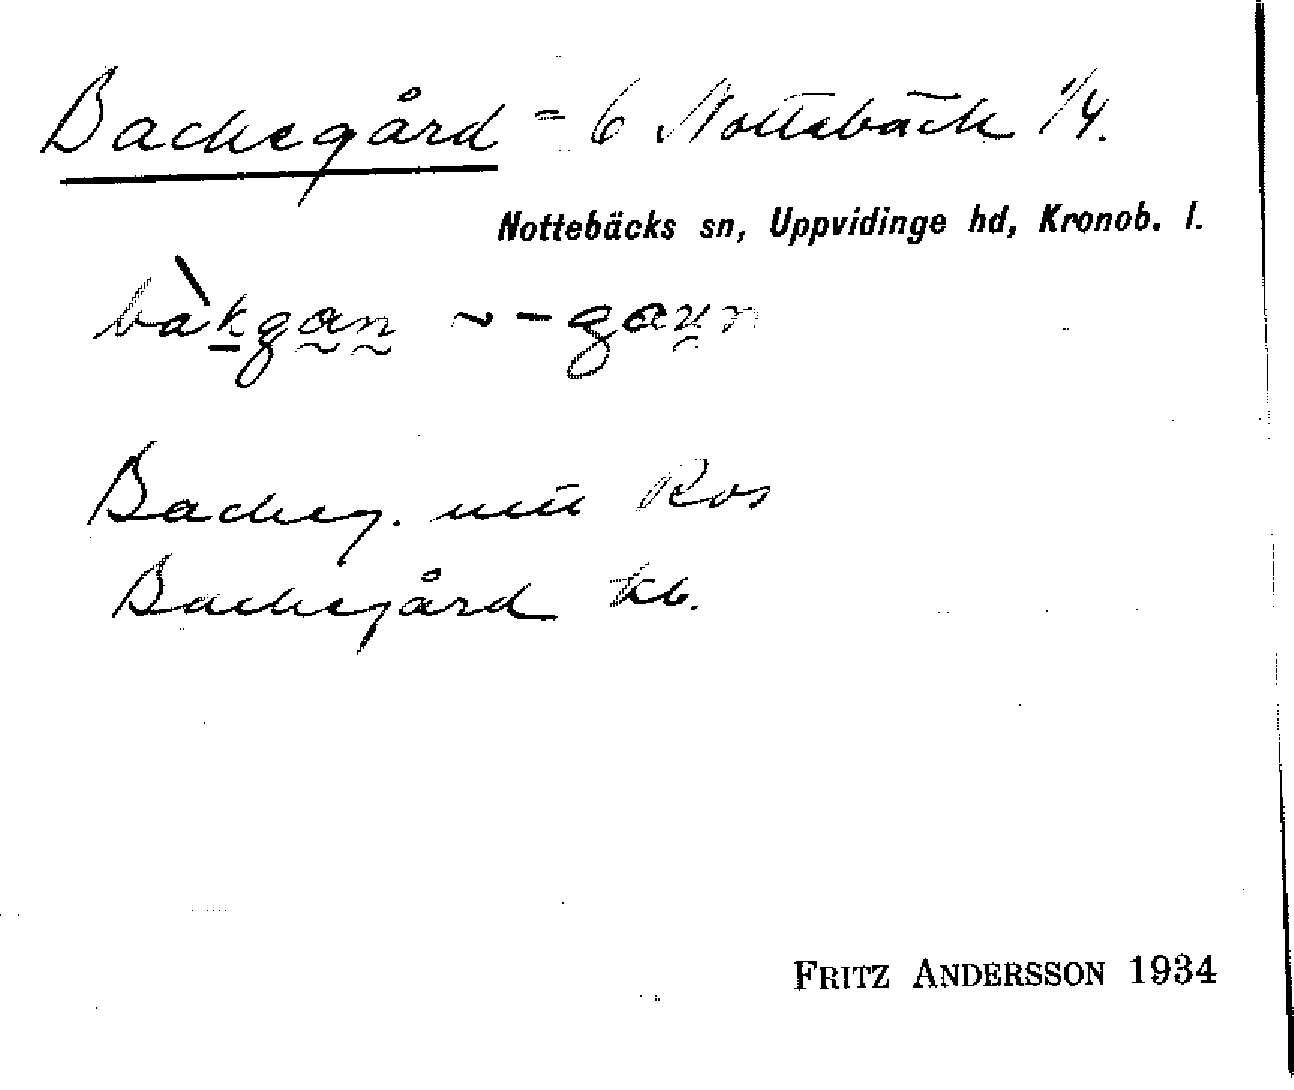 Backegård = 6 Nottebäck 1/4.
Nottebäcks sn, Uppvidinge hd, Kronob. l.
bàkgan ~ - gaun
Backeg. mtr Ros
Backegård kb.
FRITZ ANDERSSON 1934